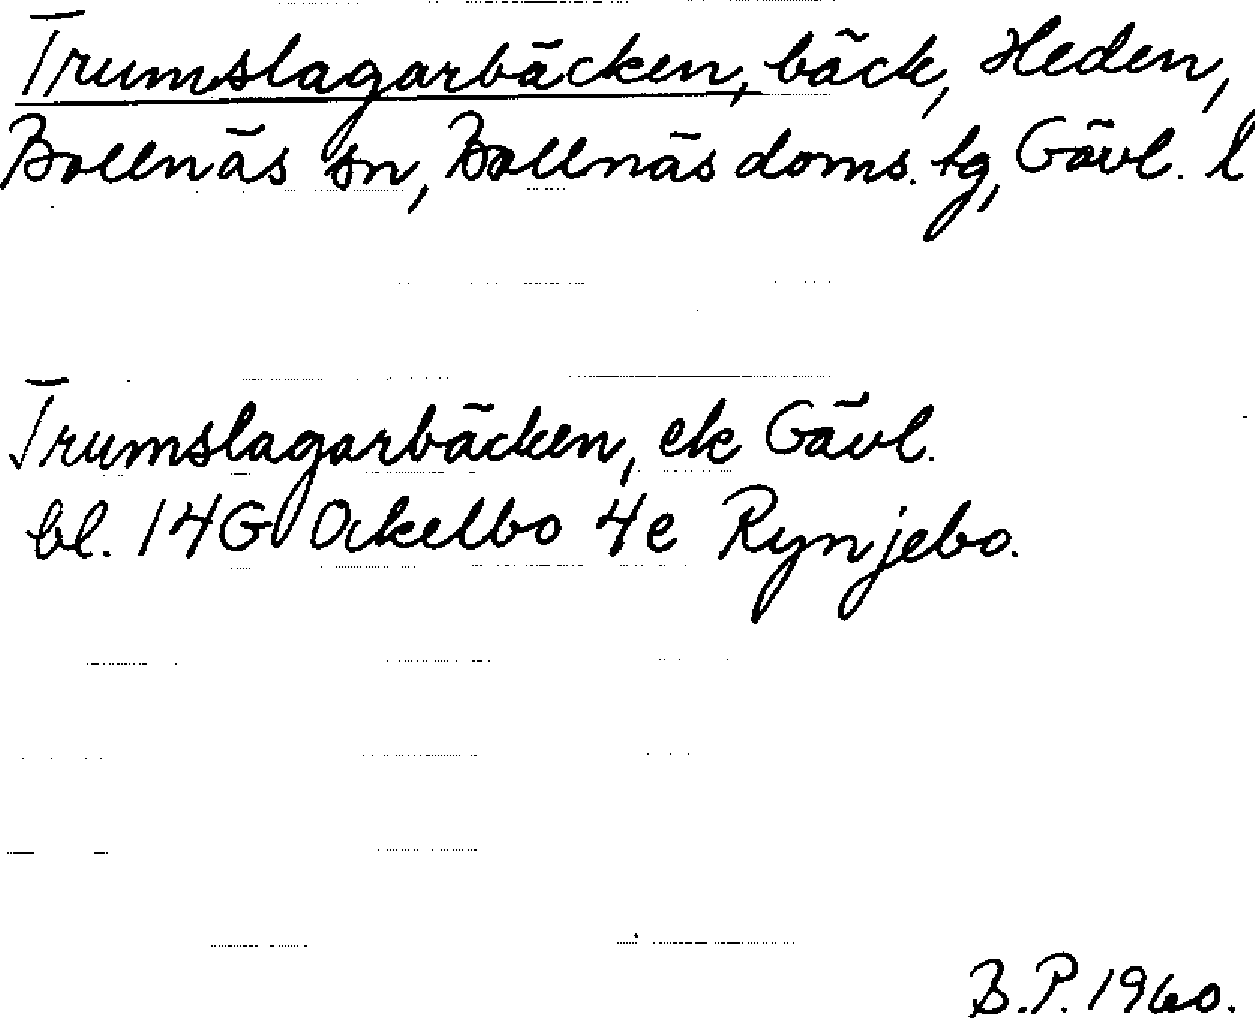 Trumslagarbäcken, bäck, Heden,
Bollnäs sn, Bollnäs doms. tg, Gävl. l
Trumslagarbäcken, ek Gävl.
bl. 14G Ockelbo 4e Rynjebo.
B.P. 1960.